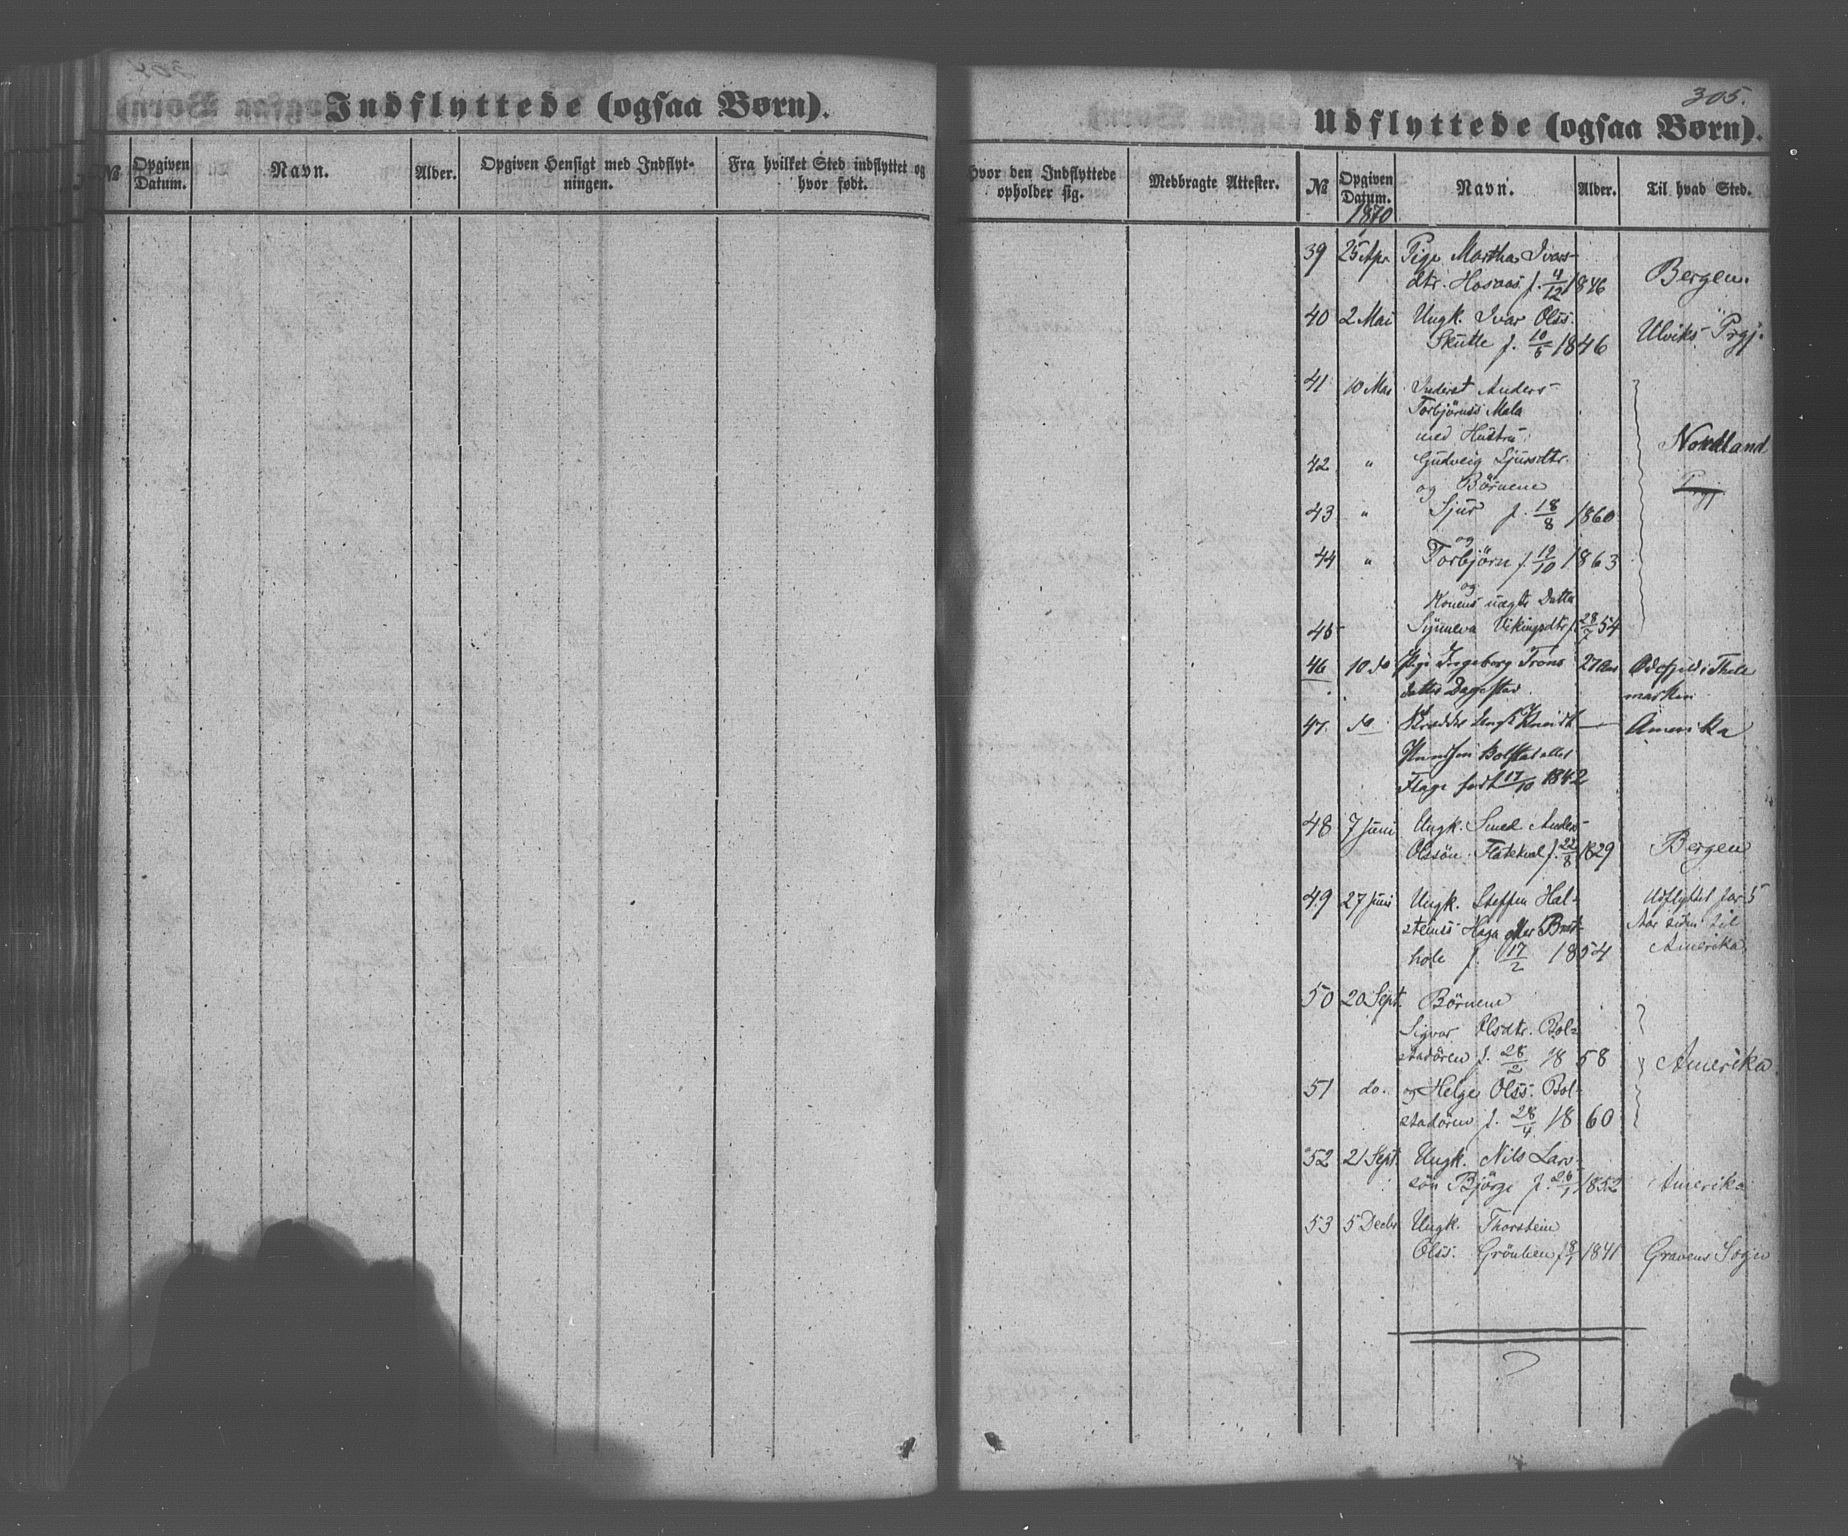 305.
Indflyttede (ogsaa Børn).
Udflyttede (ogsaa Børn).
№ Opgiven Datum. Navn. Alder. Opgiven Hensigt med Indflytningen. Fra hvilket Sted indflyttet og hvor født.
Hvor den Indflyttede opholder sig. Medbragte Attester. № Opgiven Datum. Navn. Alder. Til hvad Sted.
1870
39 25 Apr. Pige Martha Ivars-
dtr. Hosaas f. 4/12 1846 Bergen.
40 2 Mai Ungk. Ivar Olss.
Skutle f. 10/5 1846 Ulviks Prgj.
41 10 Mai Inderst Anders
Torbjørnss Mala
med Hustru Nordland
42 " Gudveig Sjursdtr.
og Børnene
43 " Sjur f. 18/8 1860
og
44 " Torbjørn f. 19/10 1863
og
Konens uægte Datter
45 Synneva Vikingsdtr f. 28/7 54
46 10 do Pige Ingeborg Trons
datter Dagestad 27 Aar i Thele
marken
47. do Skrædder Ungk Knud
Knudsen Bolstad eller
Flage født 17/10 1842 Amerika
48 7 Juni Ungk. Smed Anders
Olssøn Flatekval f. 22/8 1829 Bergen
49 27 Juni Ungk. Steffen Hal-
steinss Haga eller
hole f. 17/2 1854 Udflyttet for 5
Aar siden til
Amerika.
50 20 Sept. Børnene
Sigvor Olsdtr. Bol-
stadøren f. 28/2 1858 Amerika.
51 do. og Helge Olss. Bol-
stadøren f. 28/4 1860
52 21 Sept. Ungk. Nils Lars-
søn Bjørge f. 26/1 1852 Amerika
53 5 Decbr Ungk. Thorstein
Olss. Grønlien f. 8/1 1841 Gravens Sogn